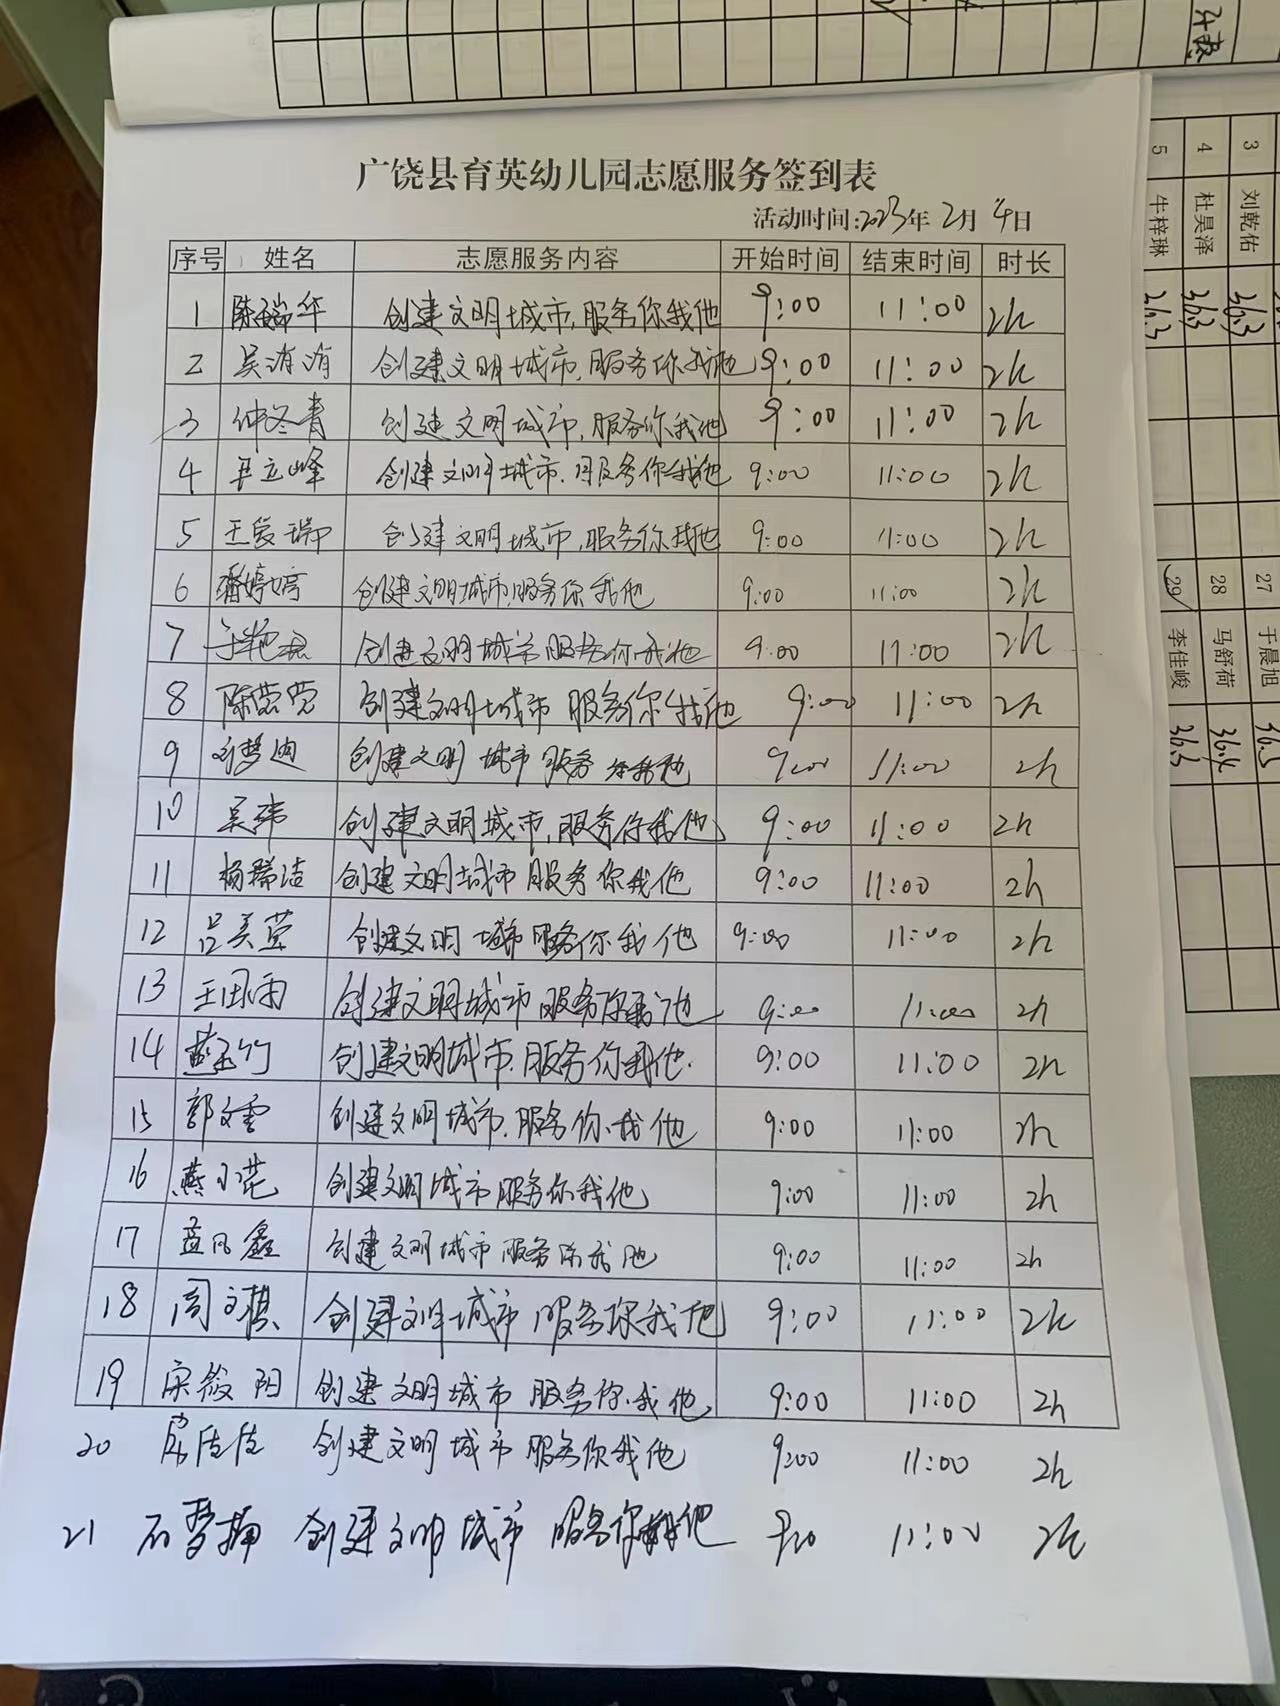 广饶县育英幼儿园志愿服务签到表
活动时间:2023年 2月 4日
序号 姓名 志愿服务内容 开始时间 结束时间 时长
1 陈瑞华 创建文明城市,服务你我他 9:00 11:00 2h
2 吴洧洧 创建文明城市,服务你我他 9:00 11:00 2h
3 仲冬青 创建文明城市,服务你我他 9:00 11:00 2h
4 立峰 创建文明城市,服务你我他 9:00 11:00 2h
5 王爱瑞 创建文明城市,服务你我他 9:00 11:00 2h
6 潘婷婷 创建文明城市,服务你我他 9:00 11:00 2h
7 创建文明城市服务你我他 9:00 11:00 2h
8 陈莹莹 创建文明城市 服务你我他 9:00 11:00 2h
9 刘梦迪 创建文明城市服务你我他 9:00 11:00 2h
10 吴玮 创建文明城市,服务你我他 9:00 11:00 2h
11 杨瑞洁 创建文明城市服务你我他 9:00 11:00 2h
12 吕美莹 创建文明城市服务你我他 9:00 11:00 2h
13 王田雨 创建文明城市服务你我他 9:00 11:00 2h
14 竹 创建文明城市.服务你我他. 9:00 11:00 2h
15 郭文雪 创建文明城市.服务你我他 9:00 11:00 2h
16 燕小花 创建文明城市服务你我他 9:00 11:00 2h
17 孟凡鑫 创建文明城市服务你我他 9:00 11:00 2h
18 周文棋 创建文明城市 服务你我他 9:00 11:00 2h
19 宋筱阳 创建文明城市 服务你我他 9:00 11:00 2h
20 房佳佳 创建文明城市 服务你我他 9:00 11:00 2h
21 石梦楠 创建文明城市 服务你我他 11:00 2h
3 刘乾佑 36.3
4 杜昊泽 36.3
5 牛梓琳 36.3
27 于晨旭 36.3
28 马舒荷 36.4
29 李佳峻 36.3